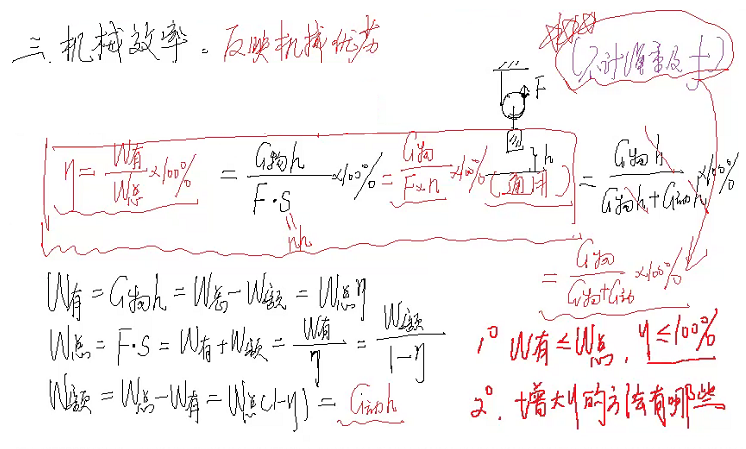 三.机械效率.反映机械优劣
(不计绳重及f)
F
h
η=W有/W总×100% =G物h/F·S×100%=G物/F×n×100%(通用)=G物h/G物h+G动h×100%
nh
=G物/G物+G动×100%
W有=G物h=W总-W额=W总η
W总=F·S=W有+W额=W有/η=W额/1-η
W额=W总-W有=W总(1-η)=G动h
1° W有≤W总,η≤100%
2°.增大η的方法有哪些